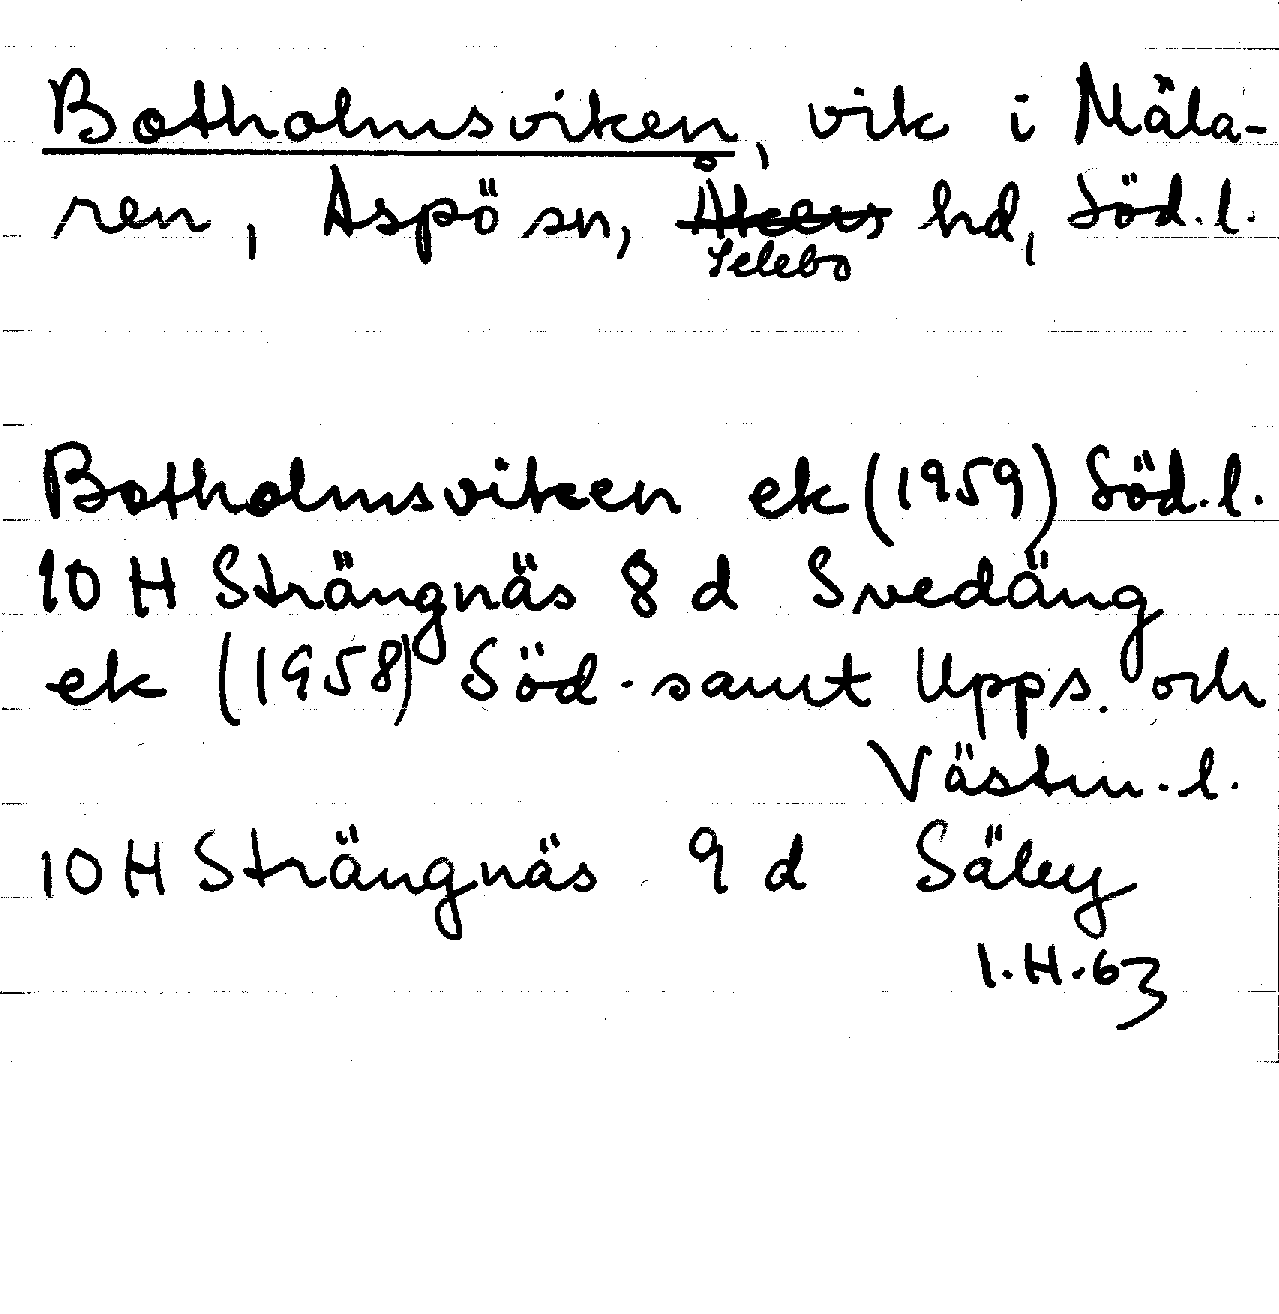 Botholmsviken, vik i Mäla-
ren, Aspö sn, Åkers hd, Söd.l.
Selebo
Botholmsviken ek (1959) Söd.l.
10 H Strängnäs 8 d Svedäng
ek (1958) Söd. samt Upps. och
Västm.l.
10 H Strängnäs 9 d Säby
I.H.63